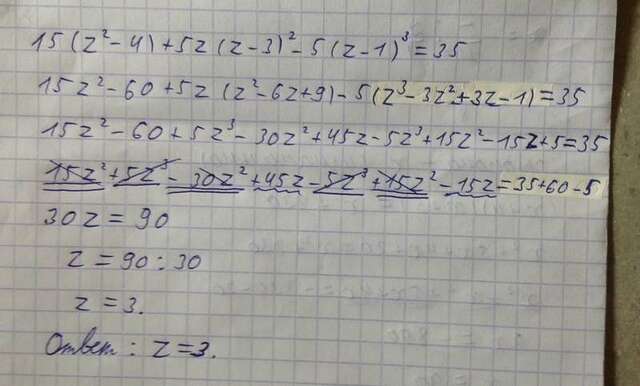 15(z²-4)+5z(z-3)²-5(z-1)³=35
15z²-60+5z(z²-6z+9)-5(z³-3z²+3z-1)=35
15z²-60+5z³-30z²+45z-5z³+15z²-15z+5=35
15z²+5z³-30z²+45z-5z³+15z²-15z=35+60-5
30z=90
z=90:30
z=3.
Ответ: z=3.